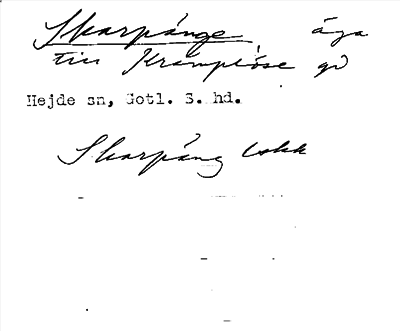 Skarpänge äga
till Krämplöse gd
Hejde sn, Gotl. S. hd.
Skarpäng lskk